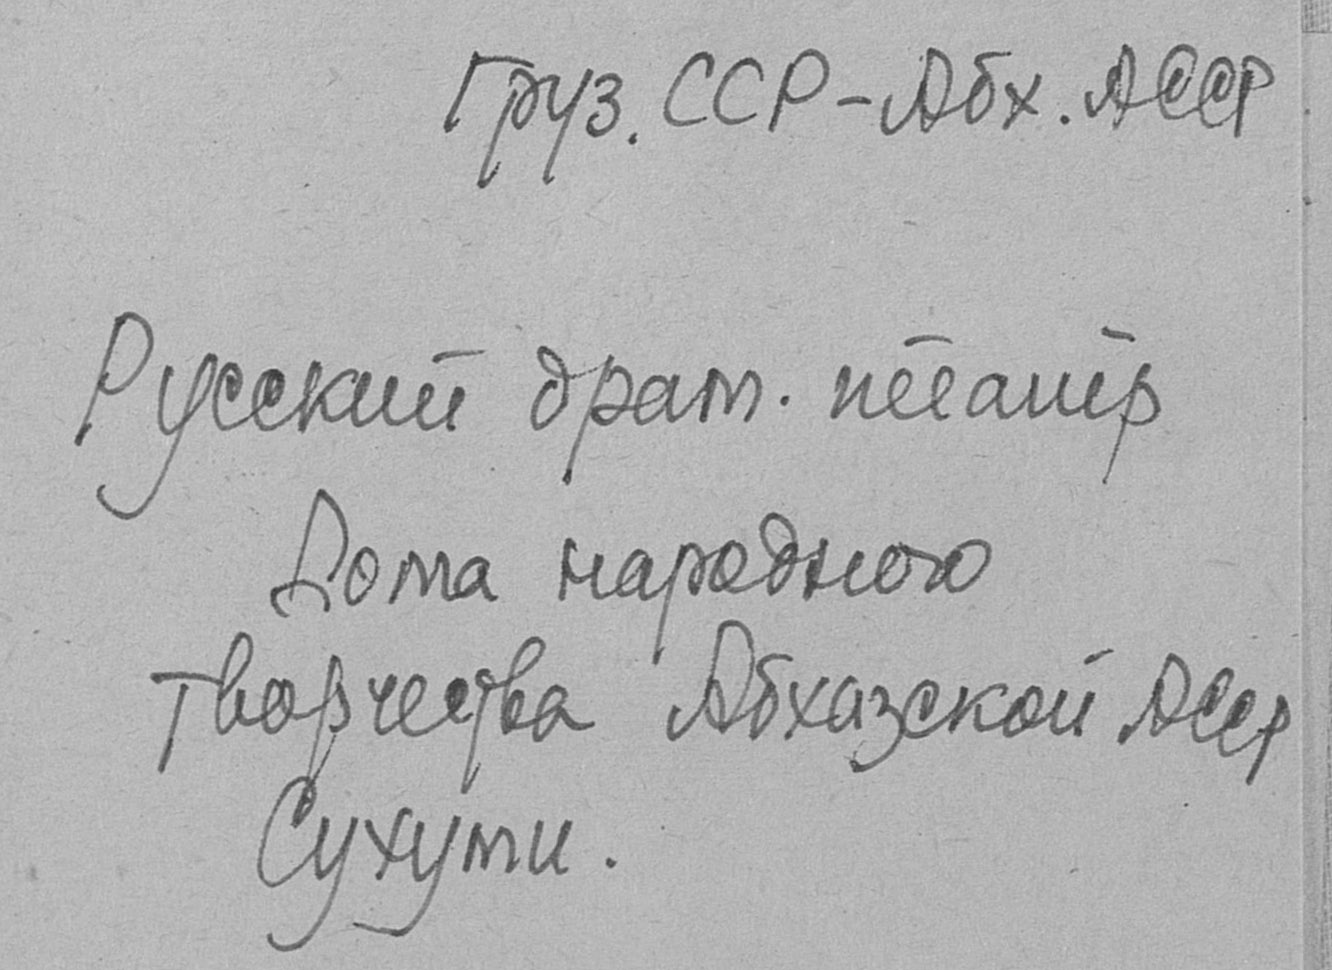 Груз. ССР - Абх. АССР
Русский драм. театр
Дома народного
творчества Абхазской АССР
Сухуми.